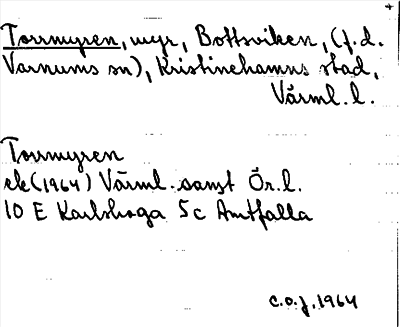 Torrmyren, myr, Bottsviken, (f.d.
Varnums sn), Kristinehamns stad,
Värml. l.
Torrmyren
ek (1964) Värml. samt Ör. l.
10 E Karlskoga 5c Amtfalla
c.o.j. 1964